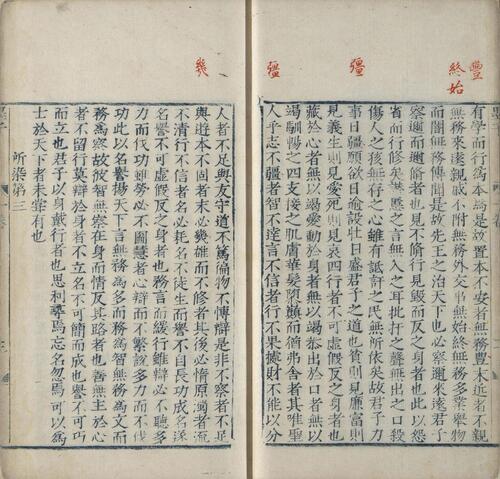 豐
終始
彊
彊
幾
有學而行爲本焉是故置本不安者無務豐末近者不親
無務來遠親戚不附無務外交事無始終無務多業舉物
而闇無務博聞是故先王之治天下也必察邇來遠君子
察邇而邇脩者也見不脩行見毀而反之身者也此以怨
省而行修矣譖慝之言無入之耳批扞之聲無出之口殺
傷人之孩無存之心雖有詆訐之民無所依矣故君子力
事日疆願欲日逾設壯日盛君子之道也貧則見廉富則
見義生則見愛死則見哀四行者不可虛假反之身者也
藏於心者無以竭愛動於身者無以竭恭出於口者無以
竭馴暢之四支接之肌膚華髮隳顚而猶弗舍者其唯聖
人乎志不疆者智不達言不信者行不果據財不能以分
人者不足與友守道不篤徧物不博辯是非不察者不足
與遊本不固者末必幾雄而不修者其後必惰原濁者流
不清行不信者名必耗名不徒生而譽不自長功成名遂
名譽不可虛假反之身者也務言而緩行雖辯必不聽多
力而伐功雖勞必不圖慧者心辯而不繁說多力而不伐
功此以名譽揚天下言無務爲多而務爲智無務爲文而
務爲察故彼智無察在身而情反其路者也善無主於心
者不留行莫辯於身者不立名不可簡而成也譽不可巧
而立也君子以身戴行者也思利尋焉忘名忽焉可以爲
士於天下者未嘗有也
所染第三